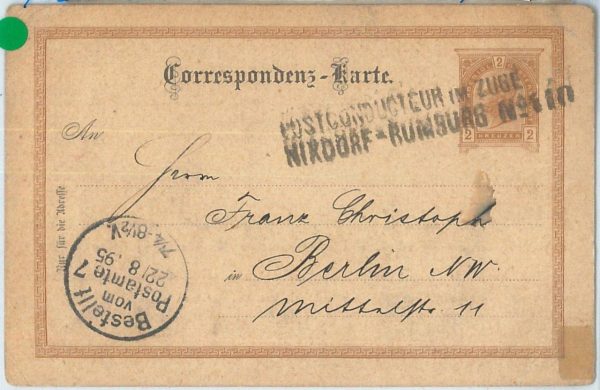 Correspondenz-Karte.
POSTCONDUCTEUR IM ZUGE
NIXDORF-RUMBURG No 110
2
KREUZER
2 2
An
Herrn
Franz Christoph
in Berlin NW.
Mittelstr 11
Nur für die Adresse
Bestellt
vom
Postamte 7
22/8.95
7¼-8½V.